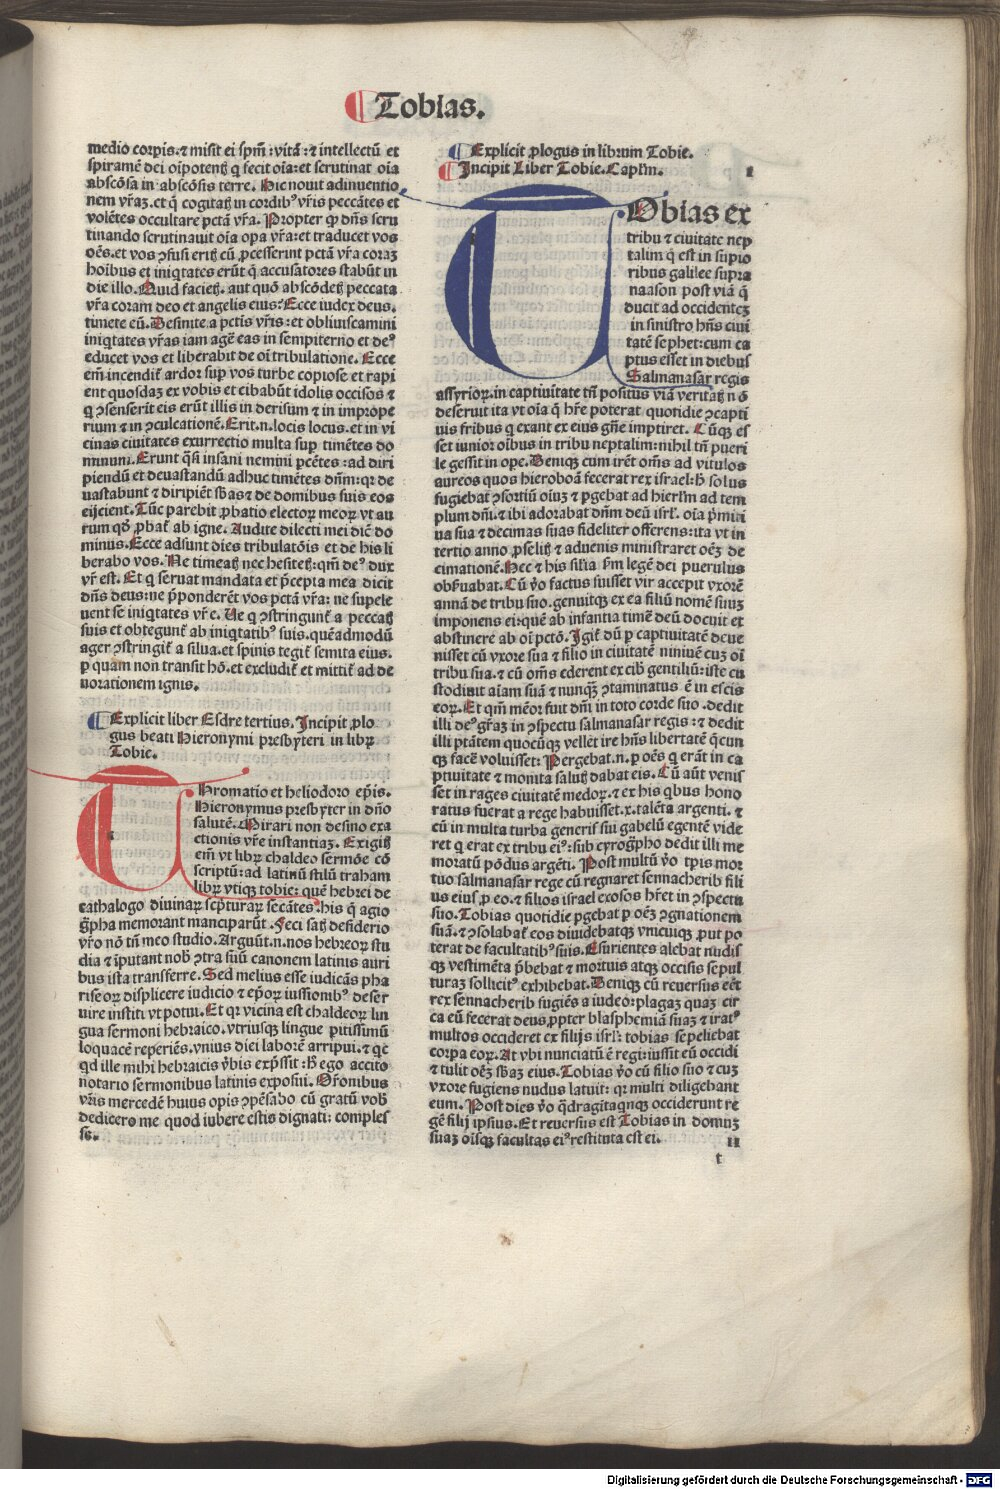 Tobias.
medio corpis.⁊ misit ei spm̄:vitā:⁊ intellectū et
spiramē dei oīpotentꝫ q̄ fecit oīa:et scrutinat oīa
abscōsa in abscōsis terre. Hic nouit adinuentio
nem vr̄aꝫ.et q̄ cogitatꝫ in cordibꝰ vr̄is peccātes et
volētes occultare pctā vr̄a. Propter qđ dn̄s scru
tinando scrutinauit oīa opa vr̄a:et traducet vos
oēs.et vos ꝯfusi eritꝫ cū ꝓcesserint pctā vr̄a coraꝫ
hoībus et iniqtates erūt q̄ accusatores stabūt in
die illo. Quid facietꝫ. aut quō abscōdetꝫ peccata
vr̄a coram deo et angelis eius: Ecce iudex deus.
timete eū. Desinite a pctīs vr̄is:et obliuiscamini
iniqtates vr̄as iam agēe eas in sempiterno et deꝰ
educet vos et liberabit de oī tribulatione. Ecce
em̄ incendit̄ ardoꝛ sup vos turbe copiose et rapi
ent quosdaꝫ ex vobis et cibabūt idolis occisos ⁊
q̄ ꝯsenserīt eis erūt illis in derisum ⁊ in imprope
rium ⁊ in ꝯculcationē. Erit.n.locis locus.et in vi
cinas ciuitates exurrectio multa sup timētes do
minum. Erunt q̄si insani nemini pcētes:ad diri
piendū et deuastandū adhuc timētes dn̄m:qꝛ de
uastabunt ⁊ diripiēt sb̄as ⁊ de domibus suis eos
eijcient. Tūc parebit ꝓbatio electoꝝ meoꝝ vt au
rum qđ ꝓbat̄ ab igne. Audite dilecti mei dic̄ do
minus. Ecce adsunt dies tribulatōis et de his li
berabo vos. Ne timeatꝫ nec hesitetꝫ:qm̄ deꝰ dux
vr̄ est. Et q̄ seruat mandata et p̄cepta mea dicit
dn̄s deus:ne p̄ponderēt vos pctā vr̄a: ne supele
uent se iniqtates vr̄e. Ue q̄ ꝯstringunt̄ a peccatꝫ
suis et obtegunt̄ ab iniqtatibꝰ suis.quēadmodū
ager ꝯstringit̄ a silua.et spinis tegit̄ semita eius.
ꝑ quam non transit hō.et excludit̄ et mittit̄ ad de
uorationem ignis.
Explicit liber Esdre tertius. Incipit ꝓlo
gus beati Hieronymi presbyteri in libꝝ
Tobie.
Chromatio et heliodoro ep̄is.
Hieronymus presbyter in dn̄o
salutē. Mirari non desino exa
ctionis vr̄e instantiaꝫ. Exigitꝫ
em̄ vt libꝝ chaldeo sermōe cō
scriptū:ad latinū stilū traham
libꝝ vtiqꝫ tobie: quē hebrei de
cathalogo diuinaꝝ scp̄turaꝝ secātes.his q̄ agio
gp̄ha memorant manciparūt. Feci satꝫ desiderio
vr̄o nō tn̄ meo studio. Arguūt.n.nos hebreoꝝ stu
dia ⁊ īputant nob̄ ꝯtra suū canonem latinis auri
bus ista transferre. Sed melius esse iudicās pha
riseoꝝ displicere iudicio ⁊ ep̄oꝝ iussionibꝰ deser
uire institi vt potui. Et qꝛ vicina est chaldeoꝝ lin
gua sermoni hebraico.vtriusqꝫ lingue pitissimū
loquacē reperiēs.vnius diei laborē arripui.⁊ qc
qd ille mihi hebraicis v̄bis exp̄ssit:h̄ ego accito
notario sermonibus latinis exposui. Or̄onibus
vr̄is mercedē huius opis ꝯpēsabo cū gratū vob̄
dedicero me quod iubere estis dignati: comples
se.
Explicit ꝓlogus in librum Tobie.
Incipit Liber Tobie. Capłm. I
TObias ex
tribu ⁊ ciuitate nep
talim q̄ est in supio
ribus galilee supra
naason post viā q̄
ducit ad occidenteꝫ
in sinistro hn̄s ciui
tatē sephet:cum ca
ptus esset in diebus
Salmanasar regis
assyrioꝝ.in captiuitate tn̄ positus viā veritatꝫ nō
deseruit ita vt oīa q̄ hr̄e poterat quotidie ꝯcapti
uis fribus q̄ exant ex eius gn̄e imptiret. Cūqꝫ es
set iunior oībus in tribu neptalim:nihil tn̄ pueri
le gessit in ope. Deniqꝫ cum irēt om̄s ad vitulos
aureos quos hieroboā fecerat rex israel:h̄ solus
fugiebat ꝯsortiū oīuꝫ ⁊ pgebat ad hierłm ad tem
plum dn̄i.⁊ ibi adorabat dn̄m deū isrł. oīa p̄miti
ua sua ⁊ decimas suas fideliter offerens:ita vt in
tertio anno ꝓselitꝫ ⁊ aduenis ministraret oēꝫ de
cimationē. Hec ⁊ his silīa ẜm legē dei puerulus
obẜuabat. Cū v̄o factus fuisset vir accepit vxorē
annā de tribu suo.genuitqꝫ ex ea filiū nomē suuꝫ
imponens ei:quē ab infantia timē deū docuit et
abstinere ab oī pctō. Igit̄ dū ꝑ captiuitatē deue
nisset cū vxore sua ⁊ filio in ciuitatē niniuē cuꝫ oī
tribu sua.⁊ cū om̄s ederent ex cib̄ gentiliū:iste cu
stodiuit aīam suā ⁊ nunqꝫ̄ ꝯtaminatus ē in escis
eoꝝ. Et qm̄ mēor fuit dn̄i in toto corde suo.dedit
illi deꝰ gr̄aꝫ in ꝯspectu salmanasar regis:⁊ dedit
illi ptātem quocūqꝫ vellet ire hn̄s libertatē q̄cun
qꝫ facē voluisset: Pergebat.n.ꝑ oēs q̄ erāt in ca
ptiuitate ⁊ monita salutꝫ dabat eis. Cū aūt venis
set in rages ciuitatē medoꝝ.⁊ ex his qbus hono
ratus fuerat a rege habuisset.x.talēta argenti.⁊
cū in multa turba generis sui gabelū egentē vide
ret q̄ erat ex tribu eiꝰ:sub cyrogp̄ho dedit illi me
moratū pōdus argēti. Post multū v̄o tp̄is mor
tuo salmanasar rege cū regnaret sennacherib fili
us eiusꝓ eo.⁊ filios israel exosos hr̄et in ꝯspectu
suo. Tobias quotidie pgebat ꝑ oēꝫ ꝯgnationem
suā.⁊ ꝯsolabat̄ eos diuidebatqꝫ vnicuiqꝫ ꝓut po
terat de facultatibꝰ suis. Esurientes alebat nudis
qꝫ vestimēta p̄bebat ⁊ mortuis atqꝫ occisis sepul
turaꝫ sollicitꝰ exhibebat. Deniqꝫ cū reuersus eēt
rex sennacherib fugiēs a iudeo:plagaꝫ quaꝫ cir
ca eū fecerat deus ꝓpter blasphemiā suaꝫ ⁊ iratꝰ
multos occideret ex filijs isrł: tobias sepeliebat
corpa eoꝝ. At vbi nunciatū ē regi:iussit eū occidi
⁊ tulit oēꝫ sb̄aꝫ eius. Tobias v̄o cū filio suo ⁊ cuꝫ
vxore fugiens nudus latuit: qꝛ multi diligebant
eum. Post dies v̄o q̄dragitaqnqꝫ occiderunt re
gē filij ipsius. Et reuersus est Tobias in domuꝫ
suaꝫ oīsqꝫ facultas eiꝰ restituta est ei. II
t
Digitalisierung gefördert durch die Deutsche Forschungsgemeinschaft - DFG